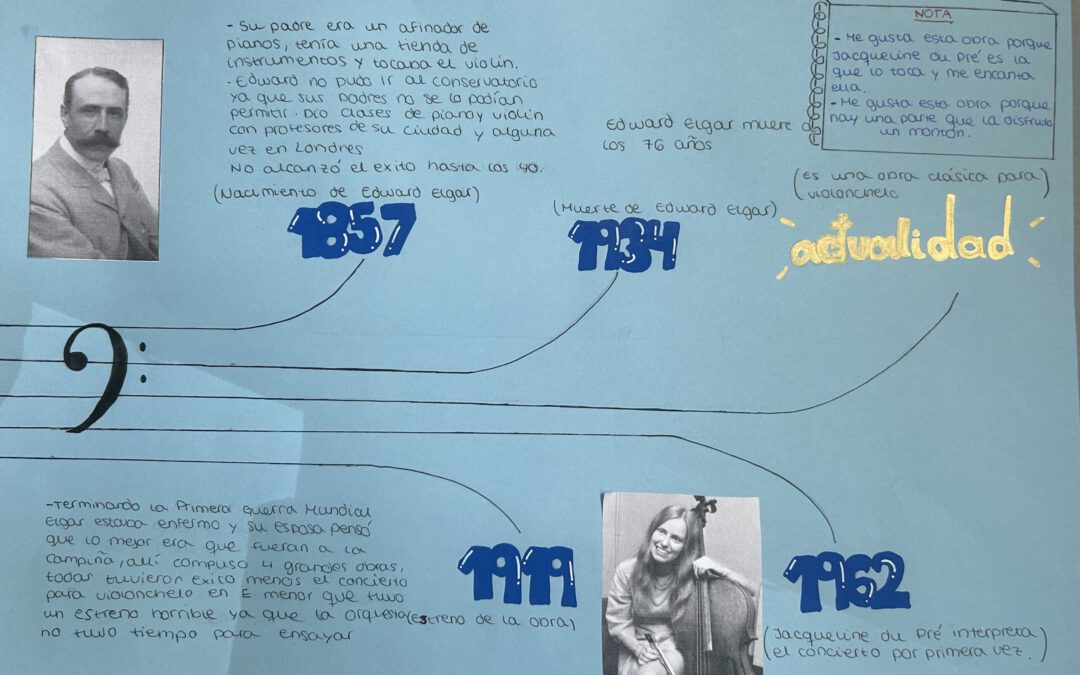 - Su padre era un afinador de
pianos, tenía una tienda de
instrumentos y tocaba el violín.
- Edward no pudo ir al conservatorio
ya que sus padres no se lo podían
permitir. Dio clases de piano y violín
con profesores de su ciudad y alguna
vez en Londres
No alcanzó el exito hasta los 40.
(Nacimiento de Edward Elgar)
1857
Edward Elgar muere a
los 76 años
(Muerte de Edward Elgar)
1934
NOTA
- Me gusta esta obra porque
Jacqueline du Pré es la
que lo toca y me encanta
ella.
- Me gusta esta obra porque
hay una parte que la disfruto
un montón.
(Es una obra clásica para
violonchelo)
actualidad
- Terminando la Primera Guerra Mundial
Elgar estaba enfermo y su esposa pensó
que lo mejor era que fueran a la
campiña, allí compuso 4 grandes obras,
todas tuvieron exito menos el concierto
para violonchelo en E menor que tuvo
un estreno horrible ya que la orquesta
no tuvo tiempo para ensayar
1919
(estreno de la obra)
1962
(Jacqueline du Pré interpreta
el concierto por primera vez.)